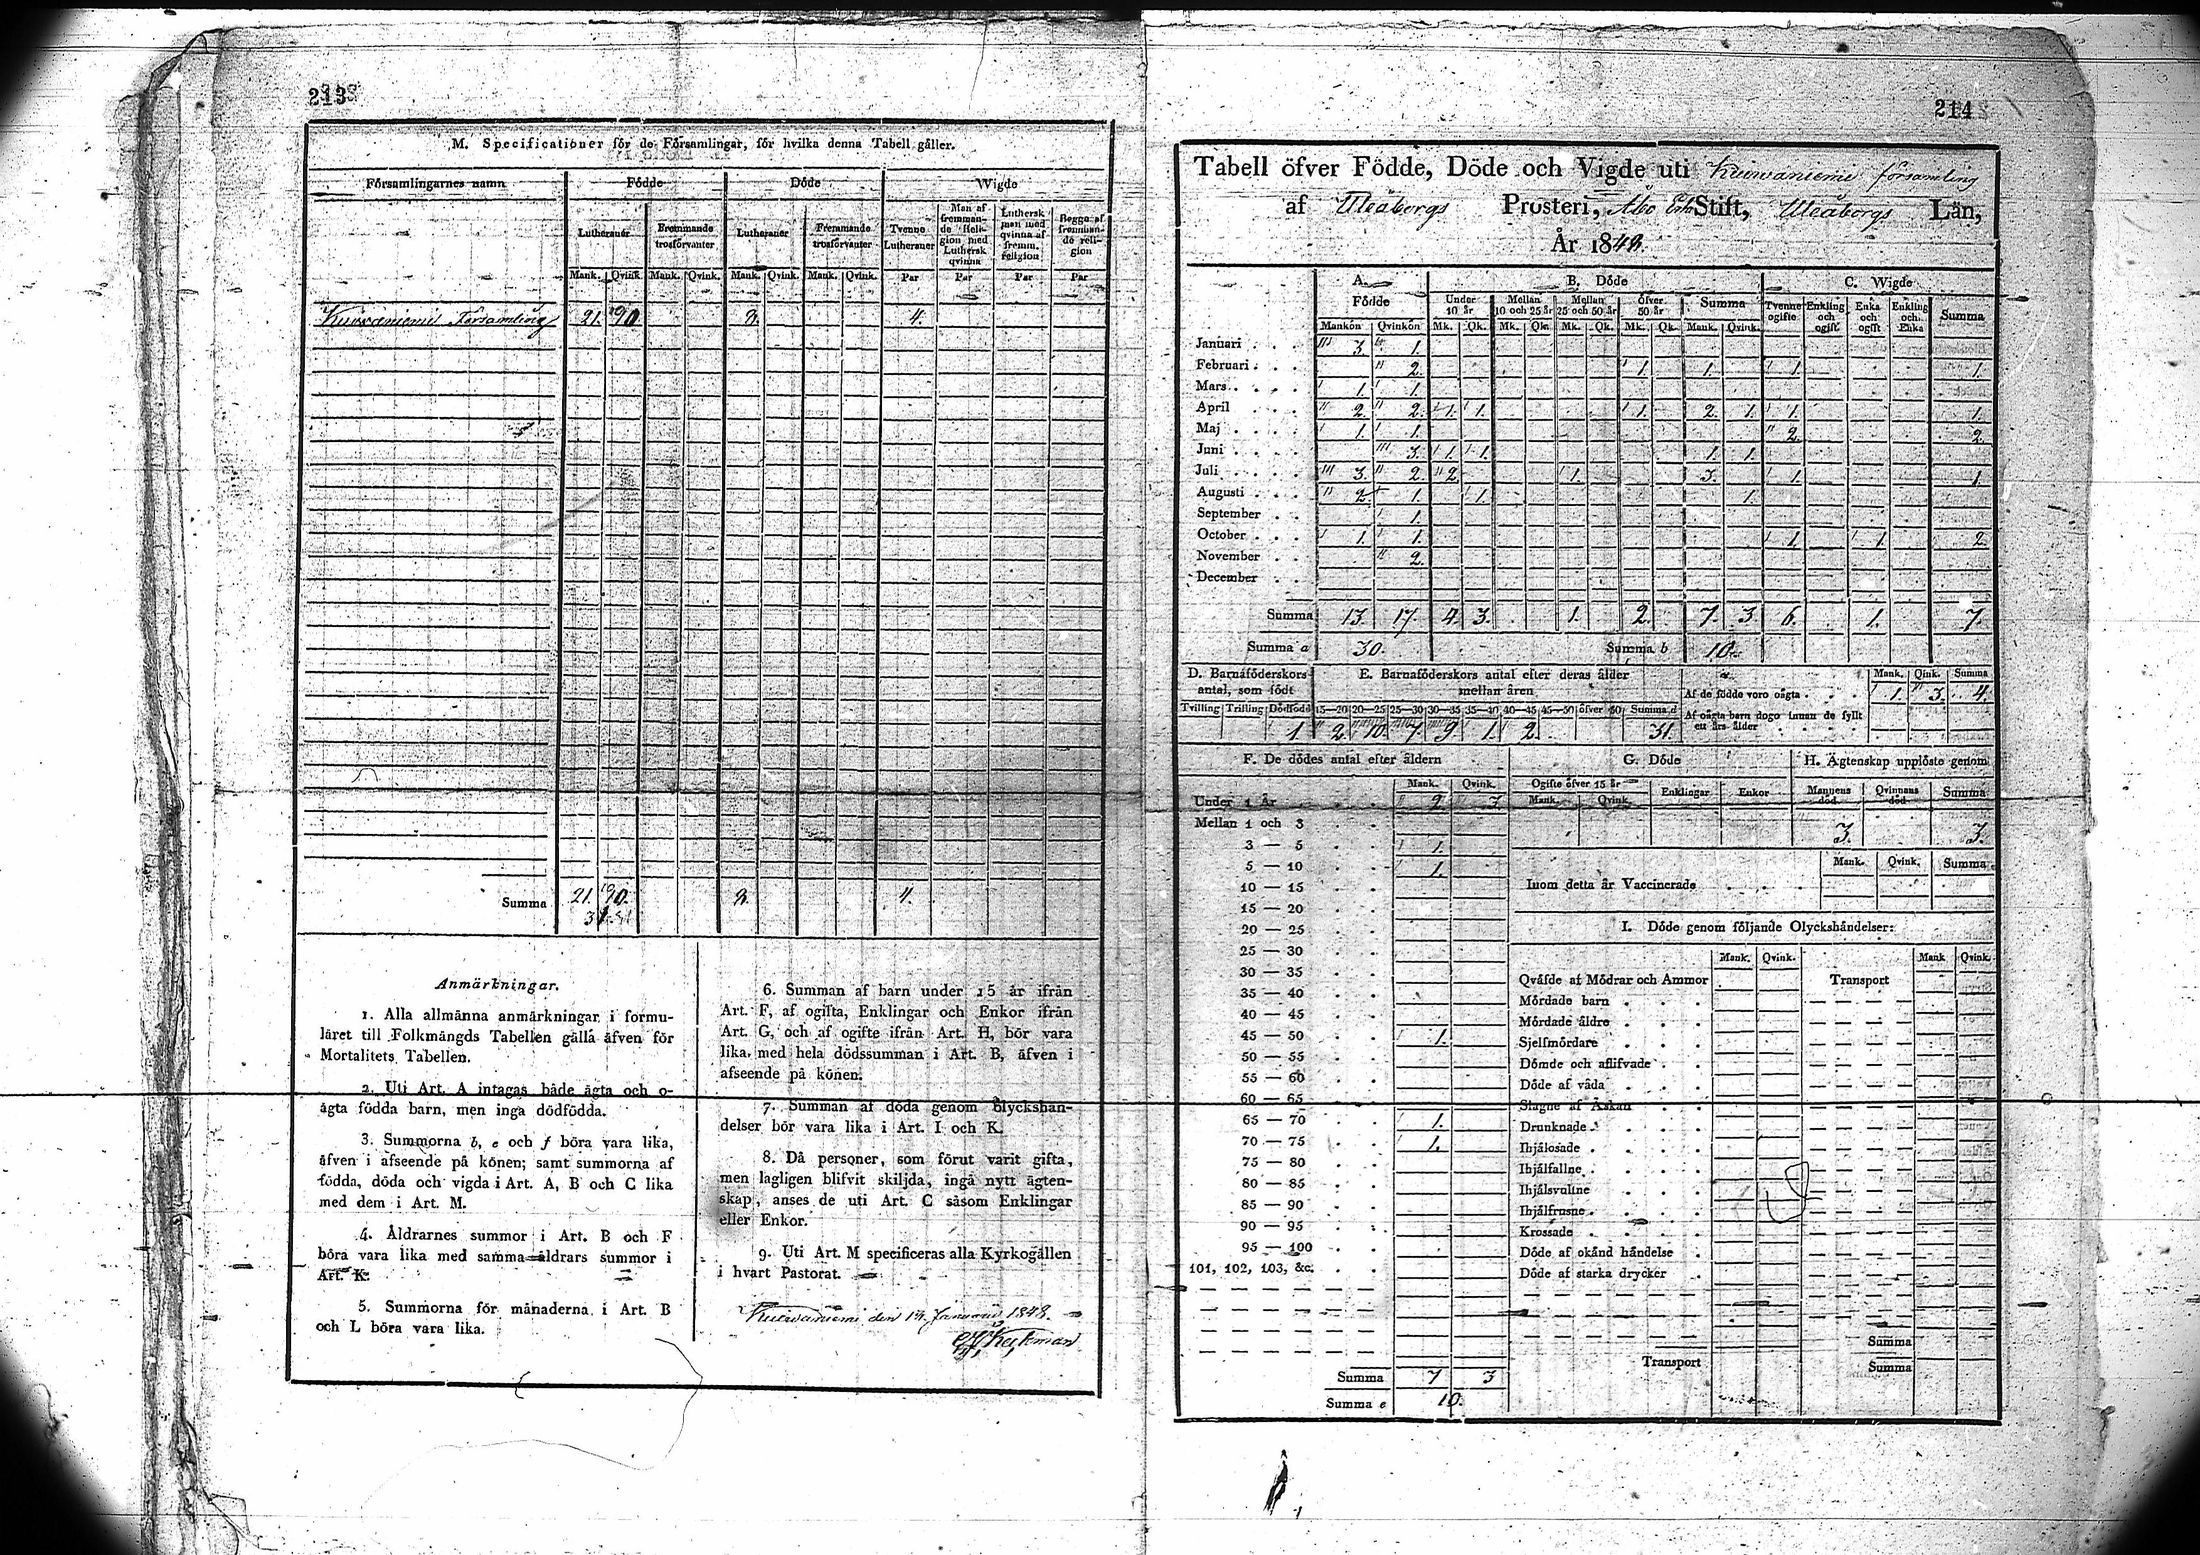 213
M. Specificationer för de Församlingar, för hvilka denna Tabell gäller.
Församlingarnes namn Födde Döde Wigde
Lutheraner Fremmande trosförvanter Lutheraner Fremmande trosförvanter Tvenne Lutheraner Man af fremmande Religion med Luthersk qvinna Luthersk man med qvinna af fremm. religion Begge af fremmande religion
Mank. Qvink. Mank. Qvink. Mank. Qvink. Mank. Qvink. Par Par Par Par
Kuivaniemi Församling 21. 10. 4.
Summa 21. 10. 4.
31.
Anmärkningar.
1. Alla allmänna anmärkningar i formu-
läret till Folkmängds Tabellen gälla äfven för
Mortalitets Tabellen.
2. Uti Art. A intagas både ägta och o-
ägta födda barn, men inga dödfödda.
3. Summorna b, e och f böra vara lika,
äfven i afseende på könen; samt summorna af
födda, döda och vigda i Art. A, B och C lika
med dem i Art. M.
4. Åldrarnes summor i Art. B och F
böra vara lika med samma åldrars summor i
Art. K.
5. Summorna för månaderna i Art. B
och L böra vara lika.
6. Summan af barn under 15 år ifrån
Art. F, af ogifta, Enklingar och Enkor ifrån
Art. G, och af ogifte ifrån Art. H, bör vara
lika med hela dödssumman i Art. B, äfven i
afseende på könen.
7. Summan af döda genom Olyckshän-
delser bör vara lika i Art. I och K.
8. Då personer, som förut varit gifta,
men lagligen blifvit skiljda, ingå nytt ägten-
skap, anses de uti Art. C såsom Enklingar
eller Enkor.
9. Uti Art. M specificeras alla Kyrkogällen
i hvart Pastorat.
Kuivaniemi den 14 Januarii 1848.
214
Tabell öfver Födde, Döde och Vigde uti Kuivaniemi församling
af Uleåborgs Prosteri, Åbo Erke Stift, Uleåborgs Län,
År 1848.
A. Födde B. Döde C. Wigde
Under 10 år Mellan 10 och 25 år Mellan 25 och 50 år öfver 50 år Summa Tvenne ogifte Enkling och ogift Enka och ogift Enkling och Enka Summa
Mankön Qvinkön Mk. Qk. Mk. Qk. Mk. Qk. Mk. Qk. Mank. Qvink.
Januari 3. 1.
Februari 2. 1. 1. 1. 1.
Mars 1. 1.
April 2. 2. 1. 1. 1. 2. 1. 1. 1.
Maj 1. 1. 2. 2.
Juni 3. 1. 1. 1. 1.
Juli 3. 2. 2. 1. 3. 1. 1.
Augusti 2. 1. 1. 1.
September 1.
October 1. 1. 1. 1. 2.
November 2.
December
Summa 13. 17. 4. 3. 1. 2. 7. 3. 6. 1. 7.
Summa a 30. Summa b 10.
D. Barnaföderskors antal, som födt
Tvilling Trilling Dödfödd
1
E. Barnaföderskors antal efter deras ålder
mellan åren
15—20 20—25 25—30 30—35 35—40 40—45 45—50 öfver 50 Summa d
2. 10. 7. 9. 1. 2. 31.
Mank. Qink. Summa
Af de födde voro oägta 1. 3. 4.
Af oägta barn dogo innan de fyllt
ett års ålder
F. De dödes antal efter åldern
Mank. Qvink.
Under 1 År 2. 3
Mellan 1 och 3
3 — 5 1.
5 — 10 1.
10 — 15
15 — 20
20 — 25
25 — 30
30 — 35
35 — 40
40 — 45
45 — 50 1.
50 — 55
55 — 60
60 — 65
65 — 70 1.
70 — 75 1.
75 — 80
80 — 85
85 — 90
90 — 95
95 — 100
101, 102, 103, &c.
Summa 7 3
Summa e 10.
G. Döde
Ogifte öfver 15 år Enklingar Enkor
Mank. Qvink.
H. Ägtenskap upplöste genom
Mannens död Qvinnans död Summa
3. 3.
Mank. Qvink. Summa
Inom detta år Vaccinerade
I. Döde genom följande Olyckshändelser:
Mank. Qvink. Mank Qvink.
Qväfde af Mödrar och Ammor Transport
Mördade barn
Mördade äldre
Sjelfmördare
Dömde och aflifvade
Döde af våda
Slagne af Åskan
Drunknade
Ihjälosade
Ihjälfallne
Ihjälsvultne
Ihjälfrusne
Krossade
Döde af okänd händelse
Döde af starka drycker
Summa
Transport Summa